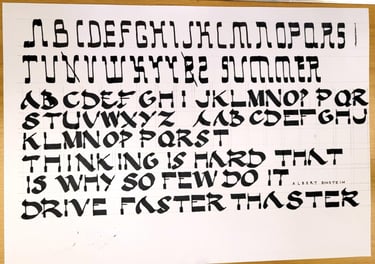 ABCDEFGHIJKLMNOPQRS
TUVWXYZ SUMMER
ABCDEFGHI JKLMNOP PQR
STUVWXYZ AABCDEFGHIJ
KLMNOP PQRST
THINKING IS HARD THAT
IS WHY SO FEW DO IT ALBERT EINSTEIN
DRIVE FASTER THASTER